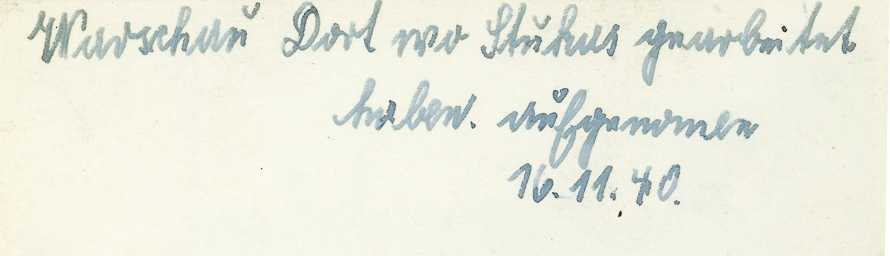 Warschau Dort wo Stukas gearbeitet
haben. aufgenomen
16.11.40.